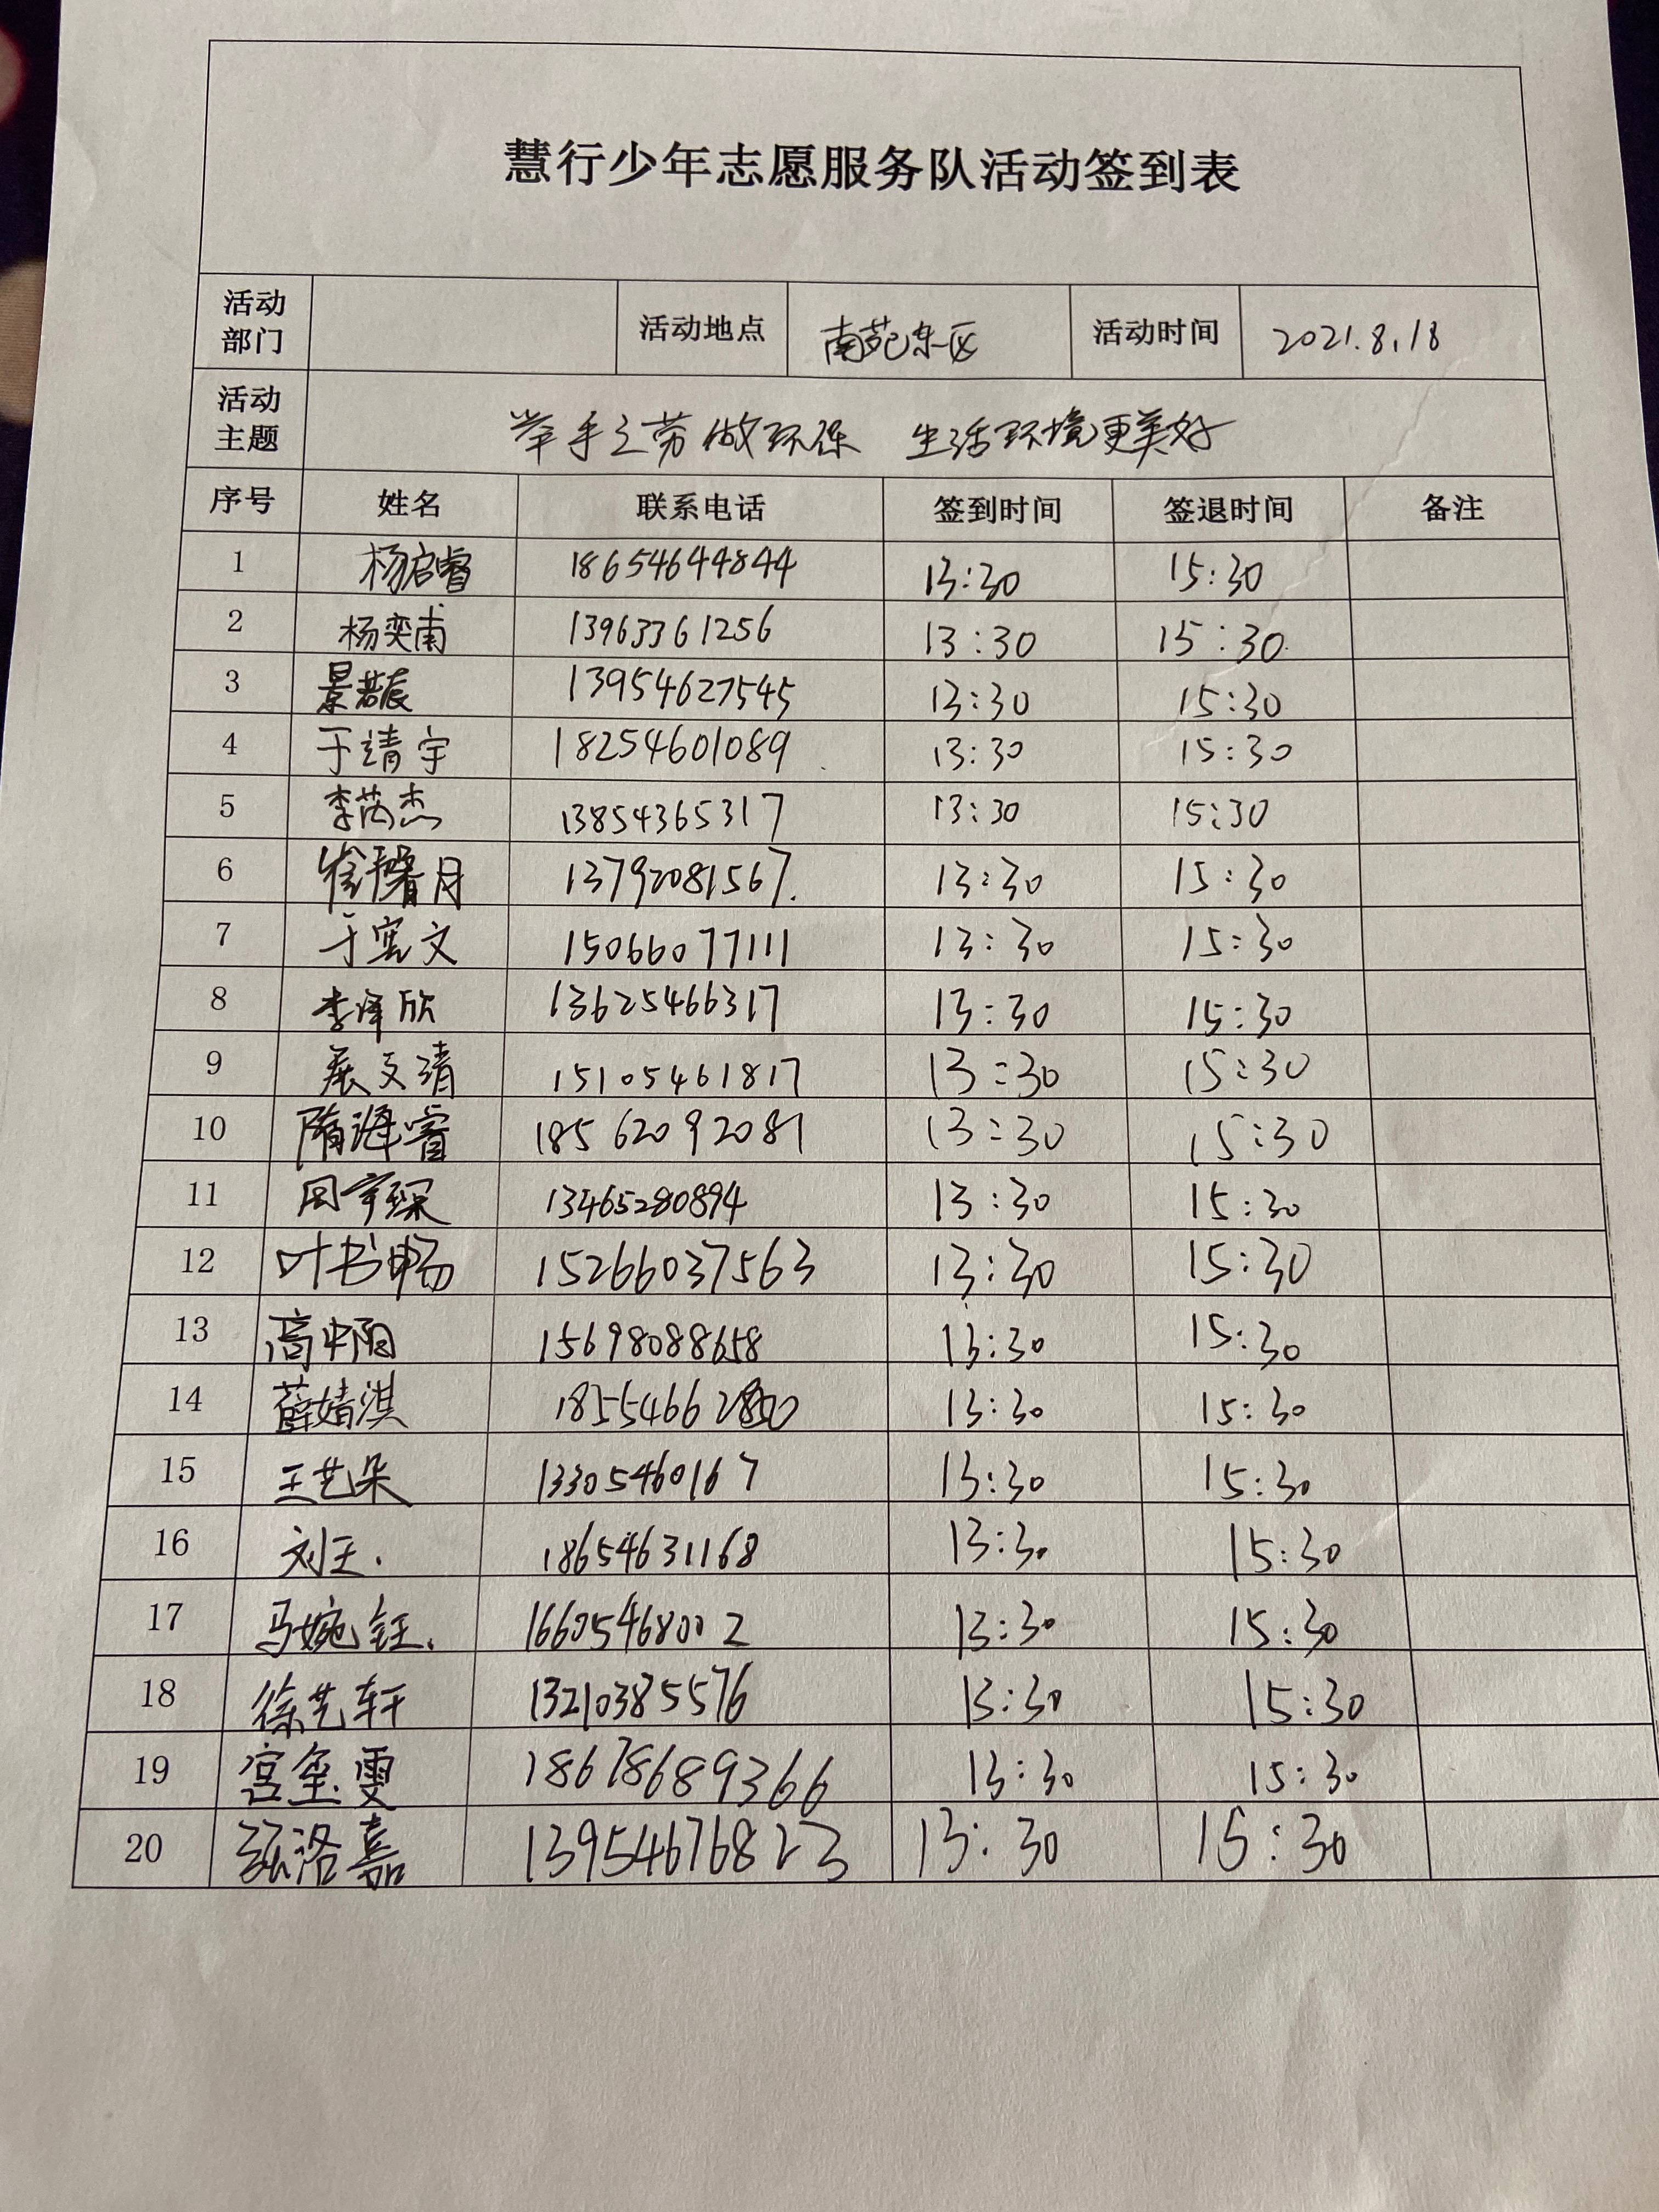 慧行少年志愿服务队活动签到表
活动部门 活动地点 南苑东区 活动时间 2021.8.18
活动主题 举手之劳做环保 生活环境更美好
序号 姓名 联系电话 签到时间 签退时间 备注
1 杨启睿 18654644844 13:30 15:30
2 杨奕甫 13963361256 13:30 15:30
3 景若辰 13954627545 13:30 15:30
4 于靖宇 18254601089 13:30 15:30
5 李芮杰 13854365317 13:30 15:30
6 徐月 13792081567. 13:30 15:30
7 于宪文 15066077111 13:30 15:30
8 李泽欣 13625466317 13:30 15:30
9 展文靖 15105461817 13:30 15:30
10 隋泽睿 18562092081 13:30 15:30
11 周宇琛 13465280894 13:30 15:30
12 叶书畅 15266037563 13:30 15:30
13 高中阳 15698088658 13:30 15:30
14 薛婧淇 13:30 15:30
15 王艺朵 13305460167 13:30 15:30
16 刘王. 18654631168 13:30 15:30
17 马婉钰. 16605468002 13:30 15:30
18 徐艺轩 13210385576 13:30 15:30
19 宫玺雯 18678689366 13:30 15:30
20 洛嘉 13954676823 13:30 15:30